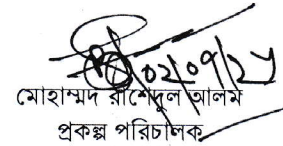 ০২/০৭/২৫
মোহাম্মদ রাশেদুল আলম
প্রকল্প পরিচালক